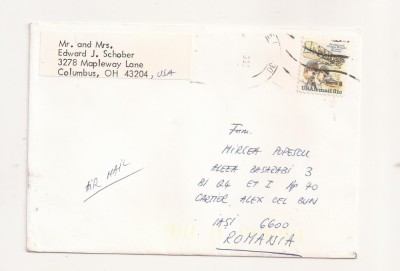 Mr. and Mrs.
Edward J. Schober
3278 Mapleway Lane
Columbus, OH 43204, USA
USAirmail 31c
Fam.
MIRCEA POPESCU
ALEEA BASARABI 3
Bl D4 ET I Ap 70
CARTIER ALEX CEL BUN
IAȘI 6600
ROMANIA
AIR MAIL